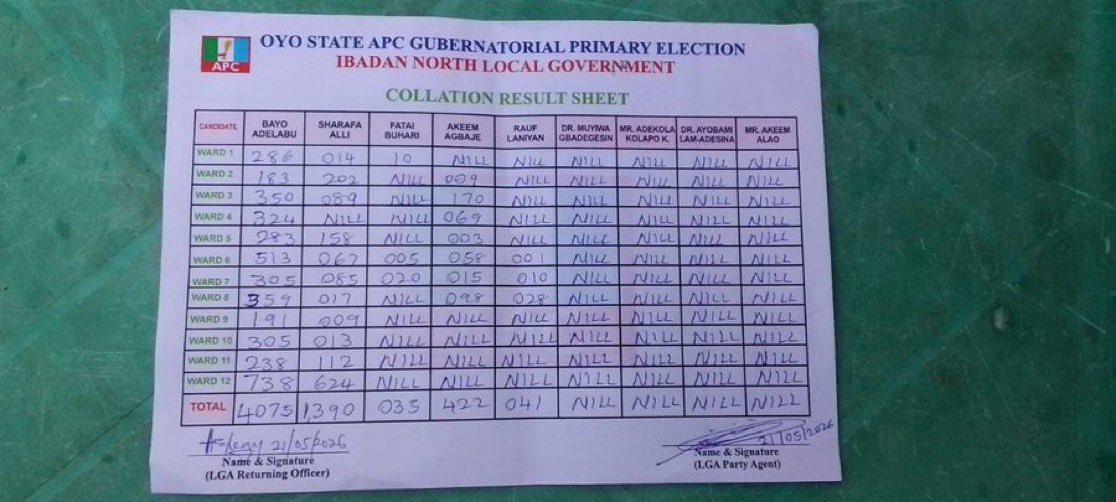 APC
OYO STATE APC GUBERNATORIAL PRIMARY ELECTION
IBADAN NORTH LOCAL GOVERNMENT
COLLATION RESULT SHEET
CANDIDATE BAYO ADELABU SHARAFA ALLI FATAI BUHARI AKEEM AGBAJE RAUF LANIYAN DR. MUYIWA GBADEGESIN MR. ADEKOLA KOLAPO K. DR. AYOBAMI LAM-ADESINA MR. AKEEM ALAO
WARD 1 286 014 10 NILL NILL NILL NILL NILL NILL
WARD 2 183 202 NILL 009 NILL NILL NILL NILL NILL
WARD 3 350 089 NILL 170 NILL NILL NILL NILL NILL
WARD 4 324 NILL NILL 069 NILL NILL NILL NILL NILL
WARD 5 283 158 NILL 003 NILL NILL NILL NILL NILL
WARD 6 513 067 005 058 001 NILL NILL NILL NILL
WARD 7 305 085 020 015 010 NILL NILL NILL NILL
WARD 8 359 017 NILL 098 028 NILL NILL NILL NILL
WARD 9 191 009 NILL NILL NILL NILL NILL NILL NILL
WARD 10 305 013 NILL NILL NILL NILL NILL NILL NILL
WARD 11 238 112 NILL NILL NILL NILL NILL NILL NILL
WARD 12 738 624 NILL NILL NILL NILL NILL NILL NILL
TOTAL 4075 1,390 035 422 041 NILL NILL NILL NILL
21/05/2026 21/05/2026
Name & Signature Name & Signature
(LGA Returning Officer) (LGA Party Agent)